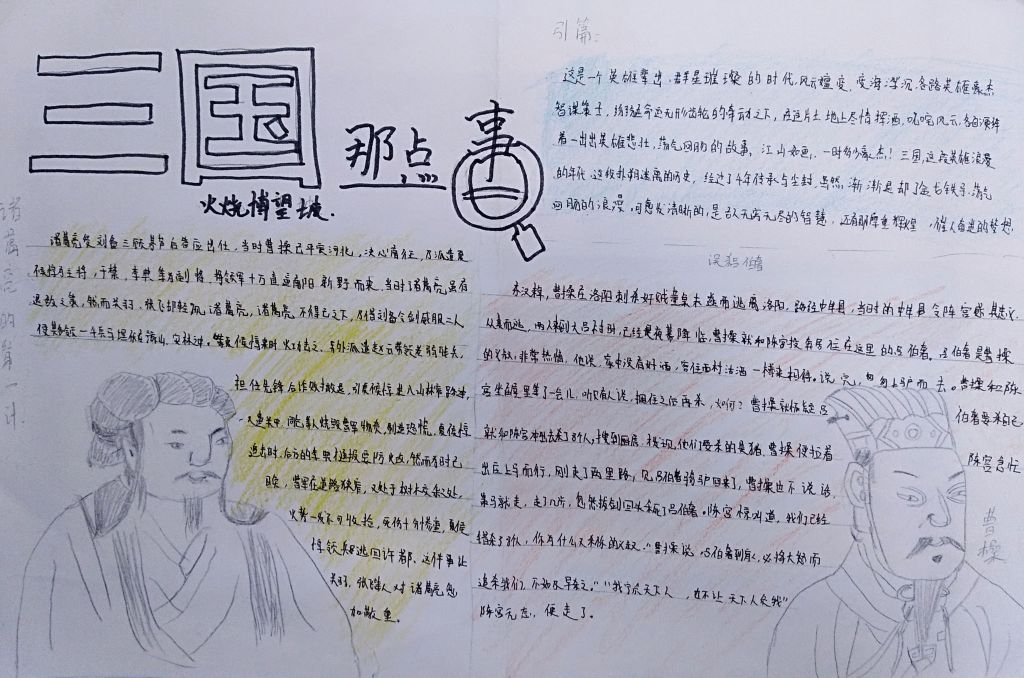 三国
那点
事
火烧博望坡.
引篇:
这是一个英雄辈出,群星璀璨的时代,风云嬗变,宦海浮沉,各路英雄豪杰
智谋策士,纷纷在命运无形齿轮的牵动之下,在这片土地上尽情挥洒,叱咤风云,各自演绎
着一出出英雄悲壮,荡气回肠的故事。江山如画,一时多少豪杰!三国,这段英雄浪漫
的年代,这段扑朔迷离的历史,经过了千年传承与尘封,当然,渐渐退却了金戈铁马,荡气
回肠的浪漫,
是取之无穷无尽的智慧,还有那厚重辉煌,催人奋进的梦想.
误杀伯奢
诸葛亮的第一计.
诸葛亮受刘备三顾茅庐后答应出仕,当时曹操已平定河北,决心南征,乃派遣夏
侯惇为主将,于禁,李典等为副将,将领军十万直逼南阳新野而来,当时诸葛亮虽有
退敌之策,然而关羽,张飞却轻视诸葛亮,诸葛亮不得已之下,乃借刘备令剑威服二人
使其能领一千兵马埋伏在
山,安林,等夏侯惇来时火攻击之,另外派遣赵云带领老弱残兵,
担任先锋后诈败撤退,引夏侯惇进入山林窄路,
追击时,后方的李典
提防火攻,然而为时已
晚,曹军在道路狭窄,又处于树木交杂之处,
火势一发不可收拾,死伤十分惨重,夏侯
惇领兵逃回许都、这件事让
关羽,张飞等人对诸葛亮愈
加敬重。
东汉末年,曹操在洛阳刺杀奸贼董卓未遂而逃离洛阳,路经中牟县,当时的中牟县令陈宫
从袁而逃,两人来到大吕村时,已经是夜幕降临,曹操就和陈宫投奔居住在这里的吕伯奢。吕伯奢是曹操
的义叔,非常热情,他说,家中没有好酒,容往西村沽酒一樽来相待。说完,匆匆上驴而去。曹操和陈
宫坐在屋里等了一会儿,听见有人说,捆住之后再杀,如何?曹操就怀疑吕
伯奢要杀自己
就和陈宫冲出去杀了8个人,搜到厨房,发现,他们要杀的是猪,曹操便拉着
陈宫急忙
出庄上马而行,刚走了两里路,见吕伯奢骑驴回来了,曹操也不说话,
策马就走,走了几步,忽然拔剑回头杀了吕伯奢。陈宫惊叫道,我们已经
错杀了8人,你为什么又杀你的义叔?"曹操说,吕伯奢到家,必将大怒而
追杀我们,不如及早杀之。""我宁负天下人,也不让天下人负我"
陈宫无奈,便走了。
曹操